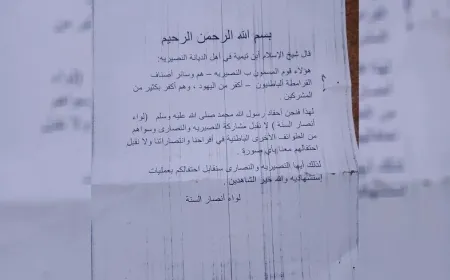 بسم الله الرحمن الرحيم
قال شيخ الإسلام ابن تيمية في أهل الديانة النصيرية:
هؤلاء قوم المسمون ب النصيريه – هم وسائر أصناف
القرامطة الباطنيون – أكفر من اليهود ، وهم أكفر بكثير من
المشركين.
لهذا فنحن أحفاد رسول الله محمد صلى الله عليه وسلم (لواء
أنصار السنة ) لا نقبل مشاركة النصيريه والنصارى وسواهم
من الطوائف الأخرى الباطنية في أفراحنا وانتصاراتنا ولا نقبل
احتفالهم معنا بأي صورة .
لذلك أيها النصيريه والنصارى سنقابل احتفالكم بعمليات
إستشهاديه والله خير الشاهدين .
لواء أنصار السنة